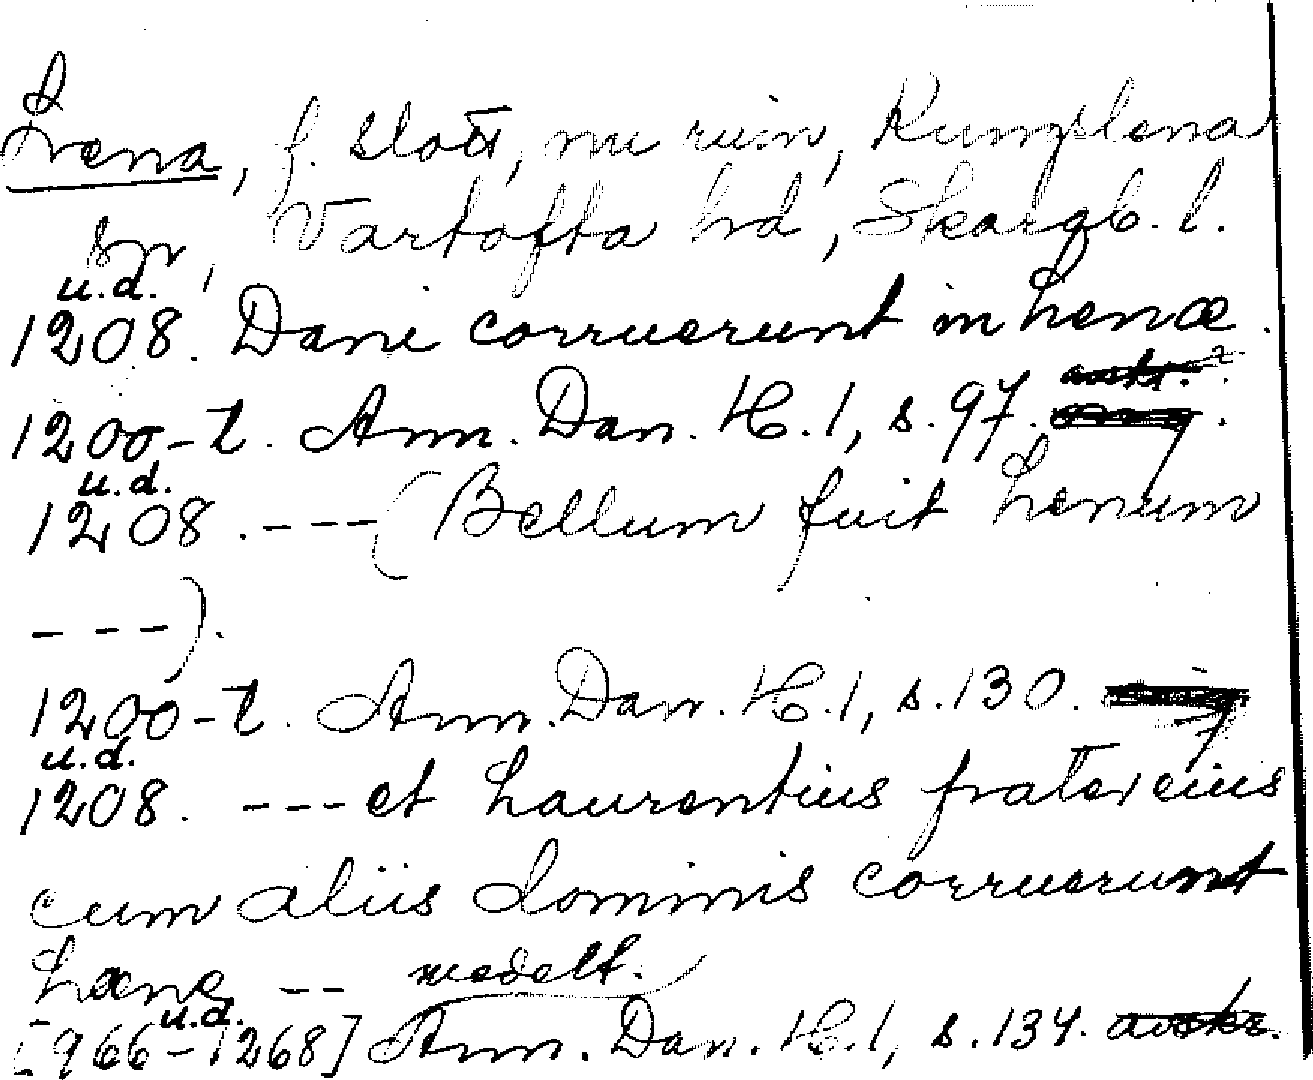 Lena, f. slott, nu ruin, Kungslena
sn, Vartofta hd, Skargb. l.
u.d.
1208. Dani corruerunt in Lenæ.
avskr.?
1200-t. Ann. Dan. H. 1, s. 97.
u.d.
1208. --- (Bellum fuit Lenum
---).
1200-t. Ann. Dan. H. 1, s. 130.
u.d.
1208. --- et Laurentius frater eius
cum aliis dominis corruerunt
Læne -- medelt.
u.d.
[966-1268] Ann. Dan. H. 1, s. 134. avskr.